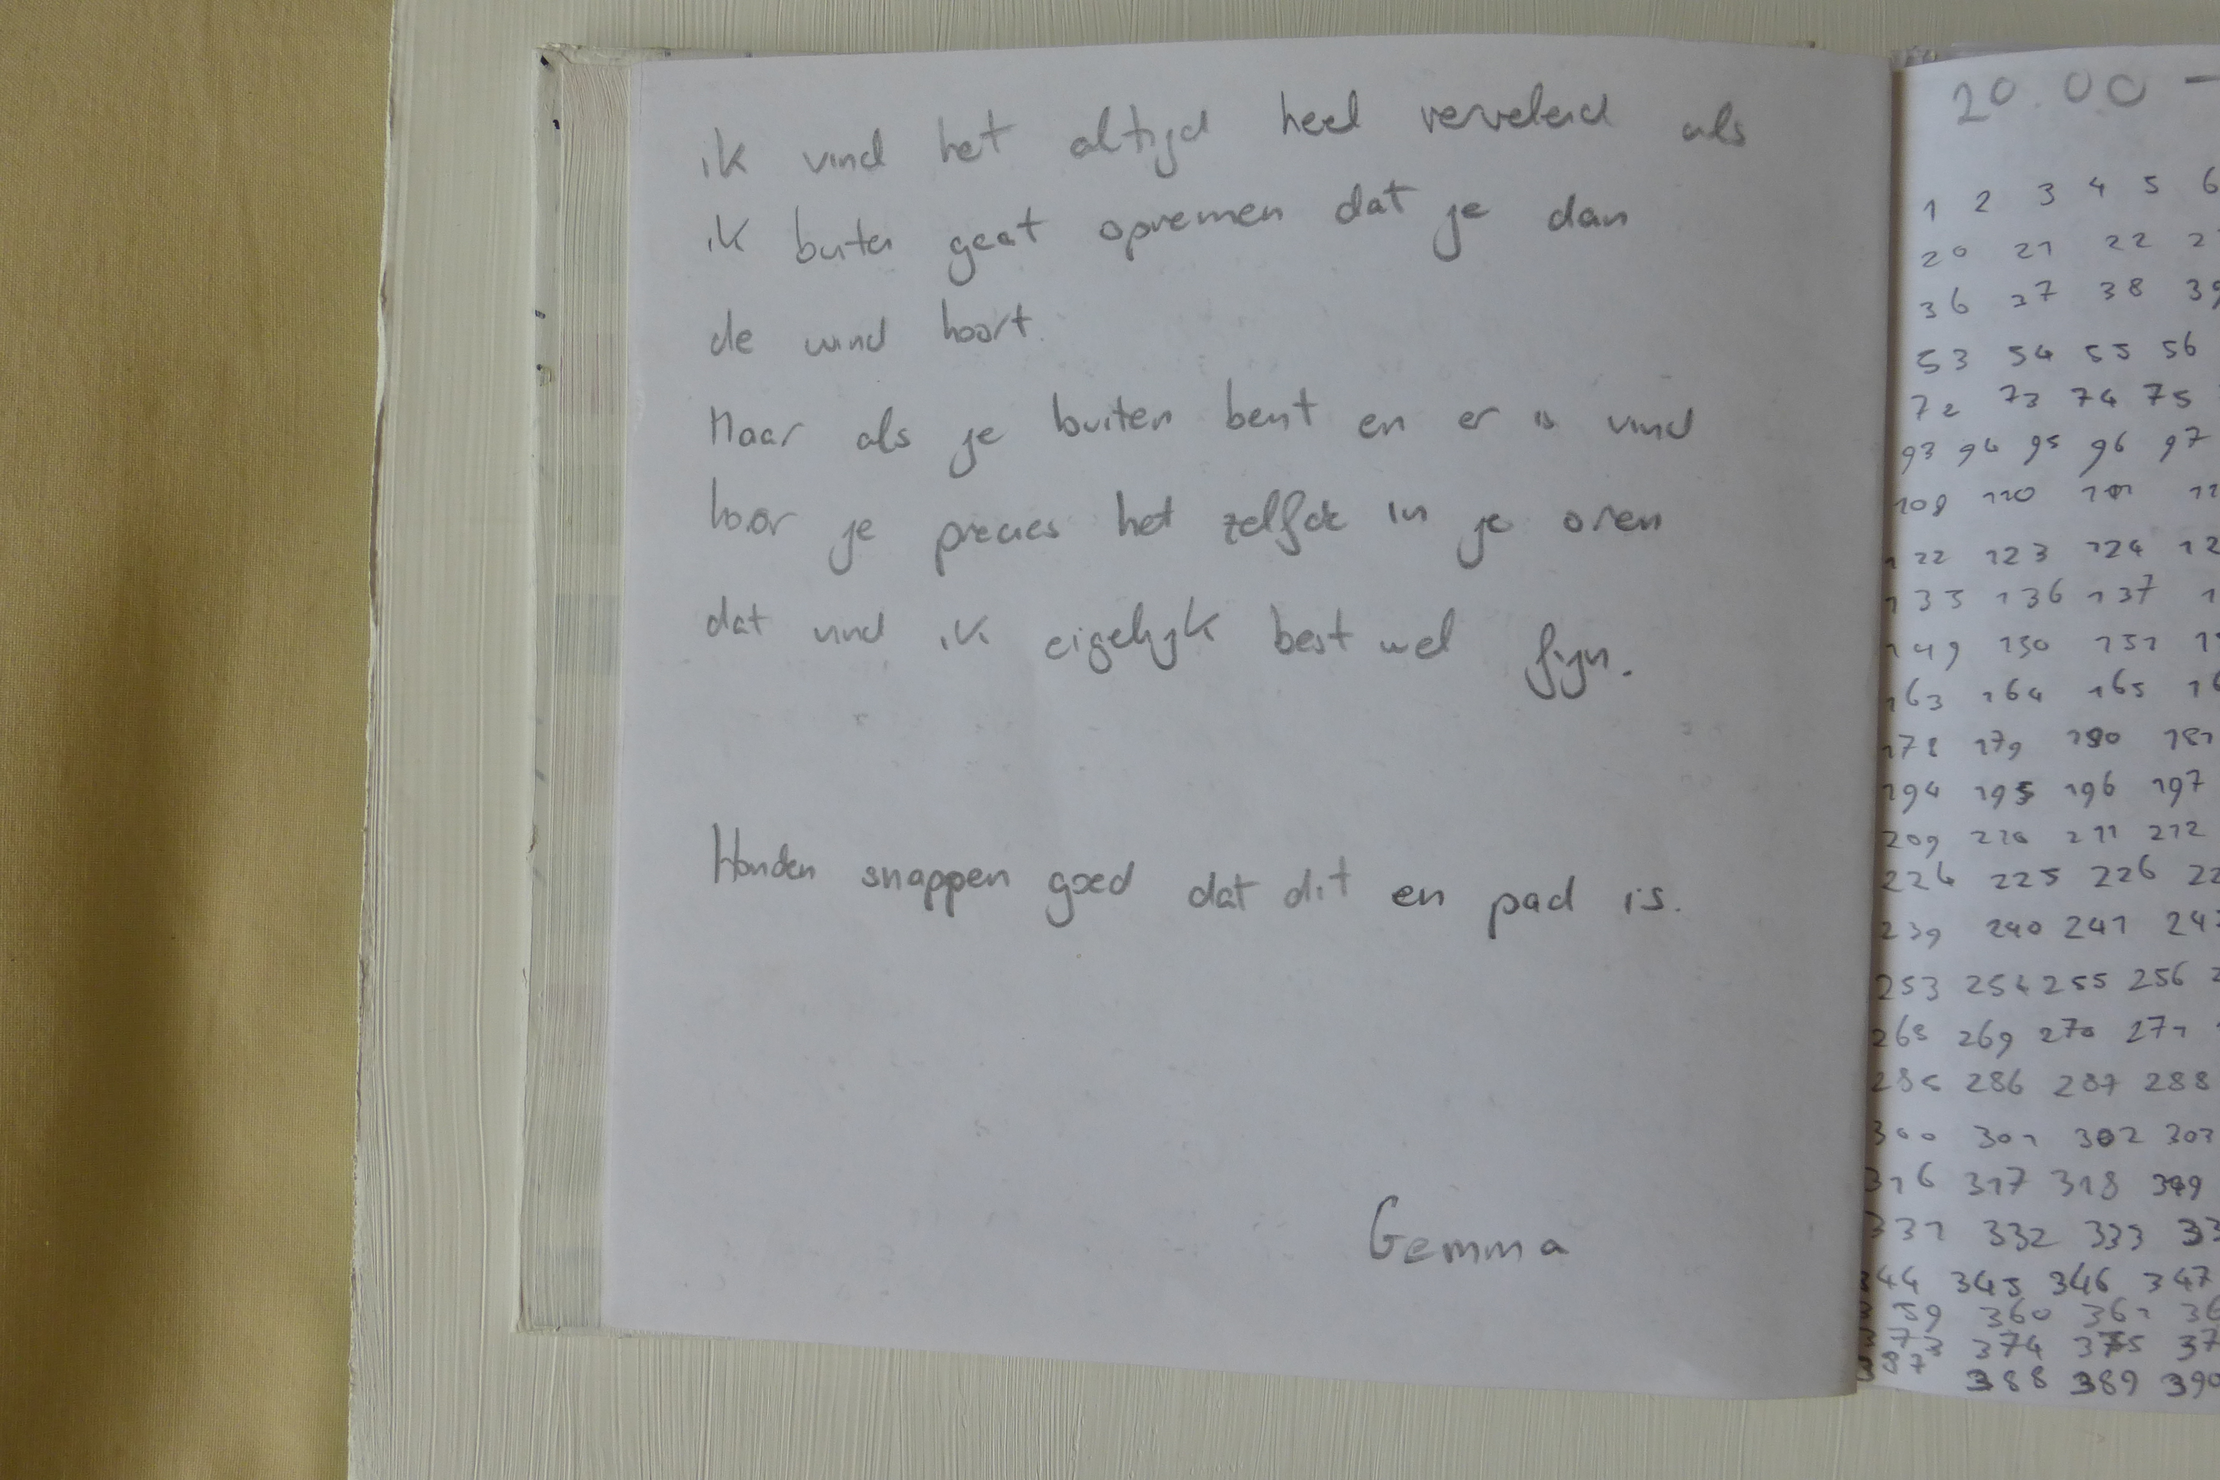 ik vind het altijd heel vervelend als
ik buiten gaat opnemen dat je dan
de wind hoort.
Maar als je buiten bent en er is wind
hoor je precies het zelfde in je oren
dat vind ik eigelijk best wel fijn.
Honden snappen goed dat dit en pad is.
Gemma
20.00 -
1 2 3 4 5 6
20 21 22 2
36 37 38 39
53 54 55 56
72 73 74 75
93 94 95 96 97
109 110 111 11
122 123 124 12
135 136 137 1
149 150 151 1
163 164 165 16
178 179 180 181
194 195 196 197
209 210 211 212
224 225 226 22
239 240 241 242
253 254 255 256 2
268 269 270 271
285 286 287 288
300 301 302 303
316 317 318 319
331 332 333 33
344 345 346 347
359 360 361 36
373 374 375 37
387 388 389 390